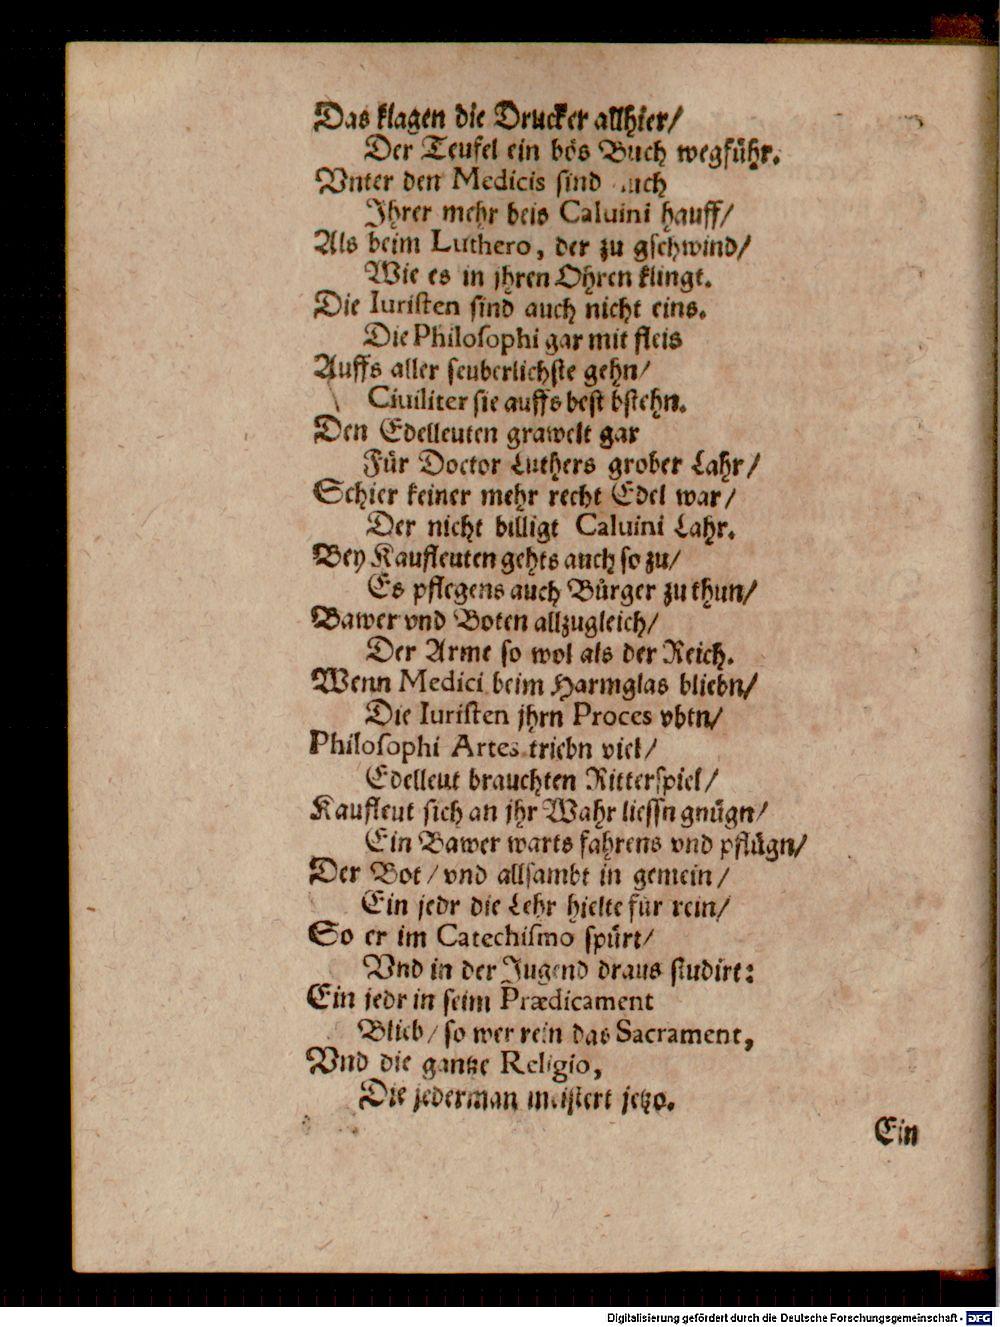 Das klagen die Drucker allhier/
Der Teufel ein bös Buch wegführ.
Vnter den Medicis sind auch
Jhrer mehr beis Caluini hauff/
Als beim Luthero, der zu gschwind/
Wie es in jhren Ohren klingt.
Die Iuristen sind auch nicht eins.
Die Philosophi gar mit fleis
Auffs aller seuberlichste gehn/
Ciuiliter sie auffs best bstehn.
Den Edelleuten grawelt gar
Für Doctor Luthers grober Lahr/
Schier keiner mehr recht Edel war/
Der nicht billigt Caluini Lahr.
Bey Kaufleuten gehts auch so zu/
Es pflegens auch Bürger zu thun/
Bawer vnd Boten allzugleich/
Der Arme so wol als der Reich.
Wenn Medici beim Harmglas bliebn/
Die Iuristen jhrn Proces vbtn/
Philosophi Artes triebn viel/
Edelleut brauchten Ritterspiel/
Kaufleut sich an jhr Wahr liessn gnügn/
Ein Bawer warts fahrens vnd pflügn/
Der Bot/ vnd allsambt in gemein/
Ein jedr die Lehr hielte für rein/
So er im Catechismo spürt/
Vnd in der Jugend draus studirt:
Ein jedr in seim Prædicament
Blieb/ so wer rein das Sacrament,
Vnd die gantze Religio,
Die jederman meistert jetzo.
Ein
Digitalisierung gefördert durch die Deutsche Forschungsgemeinschaft - DFG